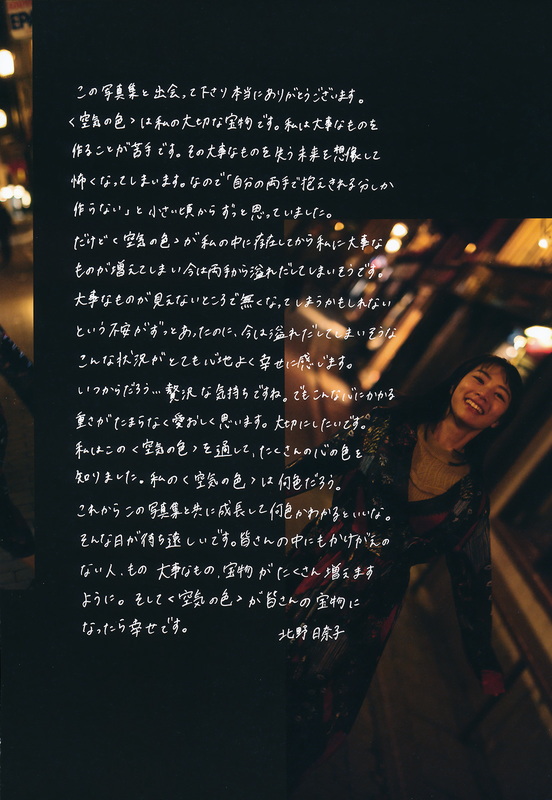 この写真集と出会って下さり本当にありがとうございます。
〈空気の色〉は私の大切な宝物です。私は大事なものを
作ることが苦手です。その大事なものを失う未来を想像して
怖くなってしまいます。なので「自分の両手で抱えきれる分しか
作らない」と小さい頃からずっと思っていました。
だけど〈空気の色〉が私の中に存在してから私に大事な
ものが増えてしまい今は両手から溢れだしてしまいそうです。
大事なものが見えないところで無くなってしまうかもしれない
という不安がずっとあったのに、今は溢れだしてしまいそうな
こんな状況がとても心地よく幸せに感じます。
いつからだろう…贅沢な気持ちですね。でもこんな心にかかる
重さがたまらなく愛おしく思います。大切にしたいです。
私はこの〈空気の色〉を通して、たくさんの心の色を
知りました。私の〈空気の色〉は何色だろう。
これからこの写真集と共に成長して何色かわかるといいな。
そんな日が待ち遠しいです。皆さんの中にもかけがえの
ない人、もの 大事なもの、宝物がたくさん増えます
ように。そして〈空気の色〉が皆さんの宝物に
なったら幸せです。
北野日奈子